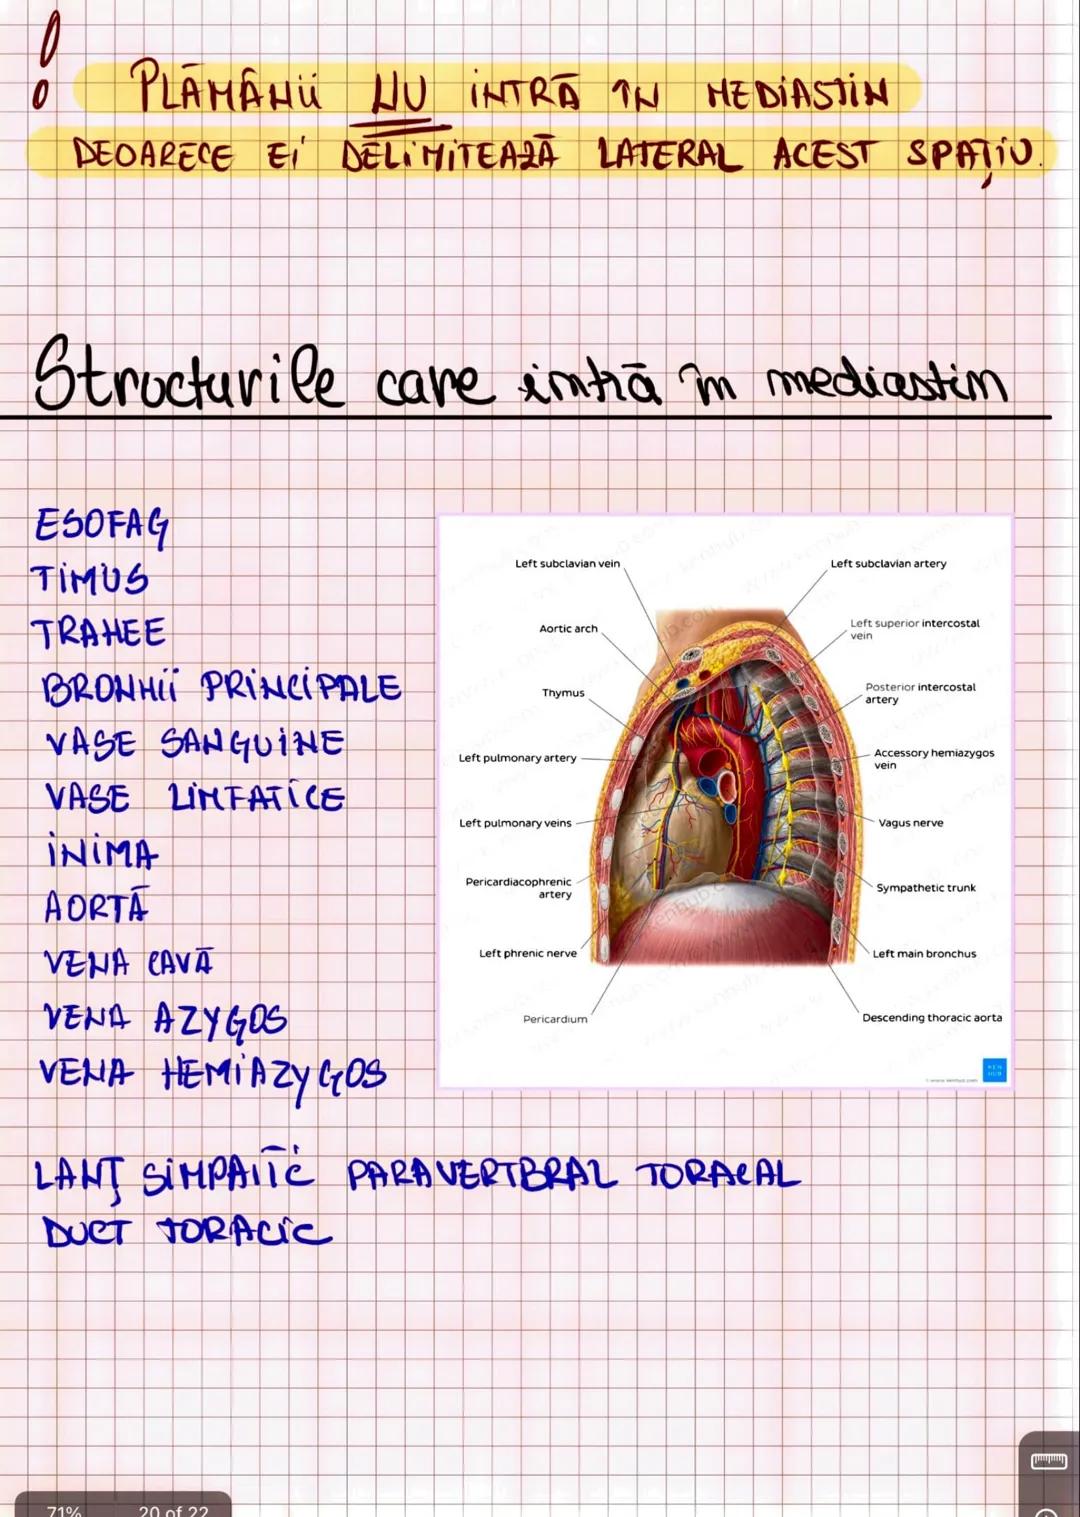 !
PLĀMÂNII NU INTRĀ ÎN MEDIASTIN
DEOARECE EI DELIMITEAZĀ LATERAL ACEST SPAȚIU.
Structurile care intrā în mediastin
ESOFAG
TIMUS
TRAHEE
BRONHII PRINCIPALE
VASE SANGUINE
VASE LIMFATICE
INIMA
AORTĀ
VENA CAVĀ
VENA AZYGOS
VENA HEMIAZYGOS
LANȚ SIMPATIC PARAVERTBRAL TORACAL
DUCT TORACIC
Left subclavian vein
Aortic arch
Thymus
Left pulmonary artery
Left pulmonary veins
Pericardiacophrenic
artery
Left phrenic nerve
Pericardium
Left subclavian artery
Left superior intercostal
vein
Posterior intercostal
artery
Accessory hemiazygos
vein
Vagus nerve
Sympathetic trunk
Left main bronchus
Descending thoracic aorta
KEN
HUB
© www.kenhub.com
71%
20 of 22